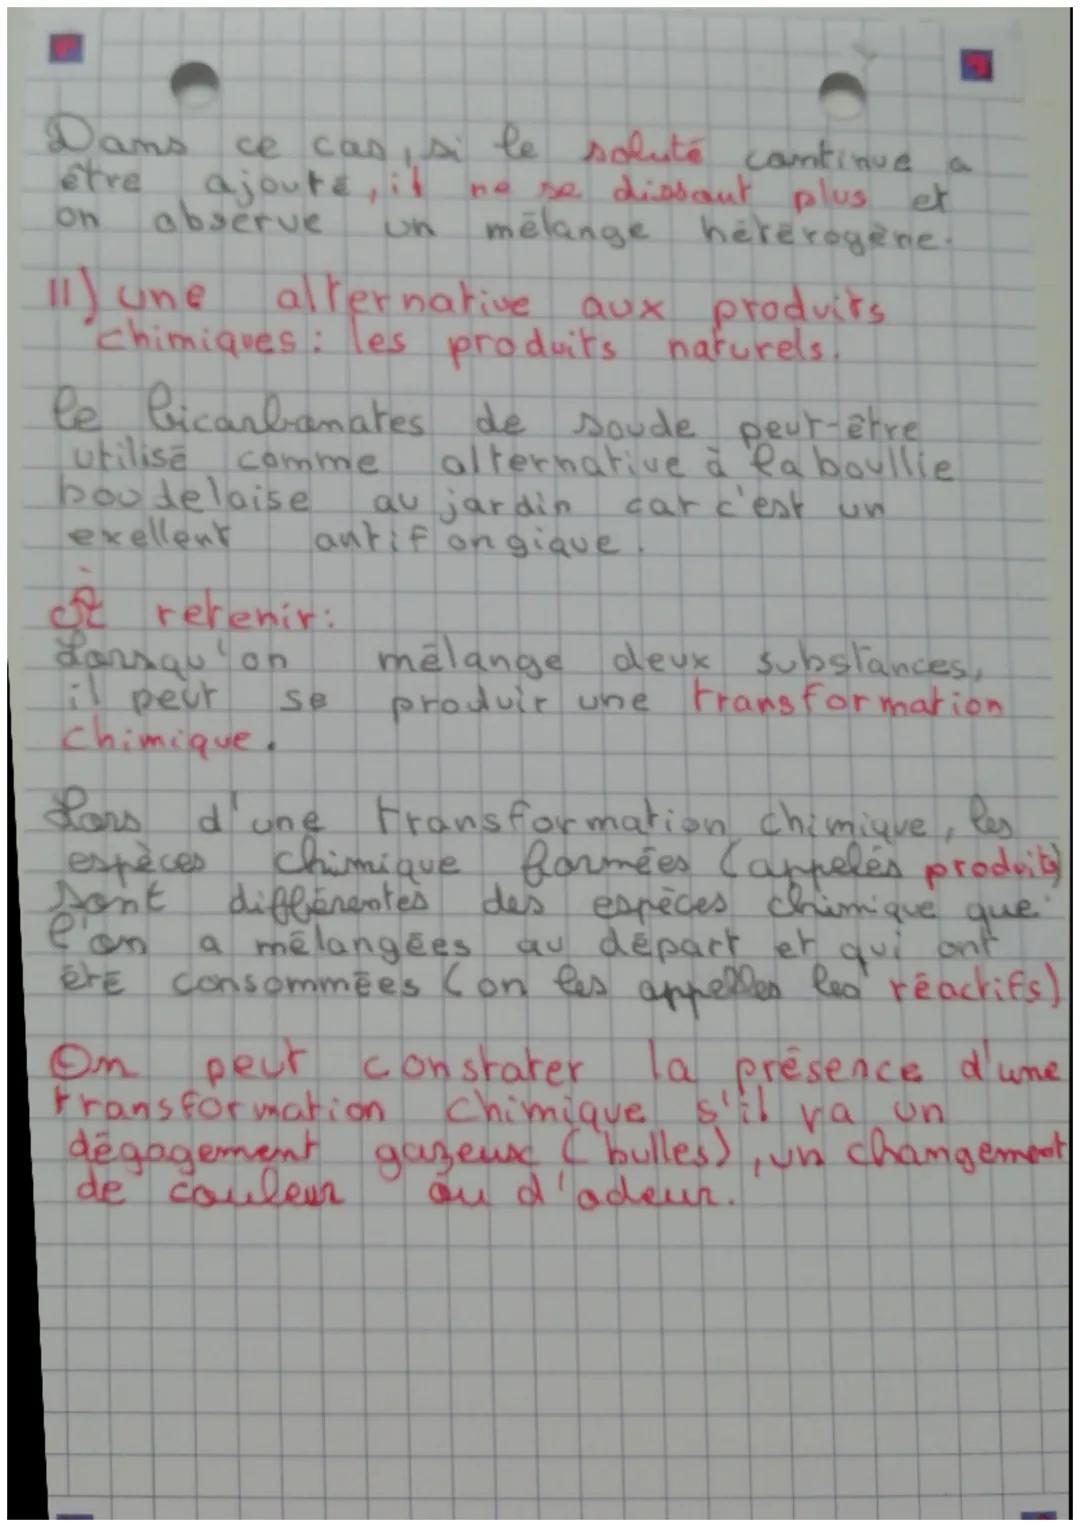 Dans ce cas, si le soluté continue a
être ajouté, il ne se dissout plus et
on observe un mélange hétérogène.
II) une alternative aux produits
chimiques : les produits naturels.
le bicarbonates de soude peut-être
utilisé comme alternative à la boullie
boudelaise au jardin car c'est un
exellent antifongique.
À retenir:
Lorsqu'on mélange deux substances,
il peut se produir une transformation
chimique.
Lors d'une transformation chimique, les
espèces chimique formées (appelés produits)
sont différentes des espèces chimique que
l'on a mélangées au départ et qui ont
été consommées (on les appelles les réactifs)
On peut constater la présence d'une
transformation chimique s'il ya un
dégagement gazeux (bulles), un changement
de couleur ou d'odeur.